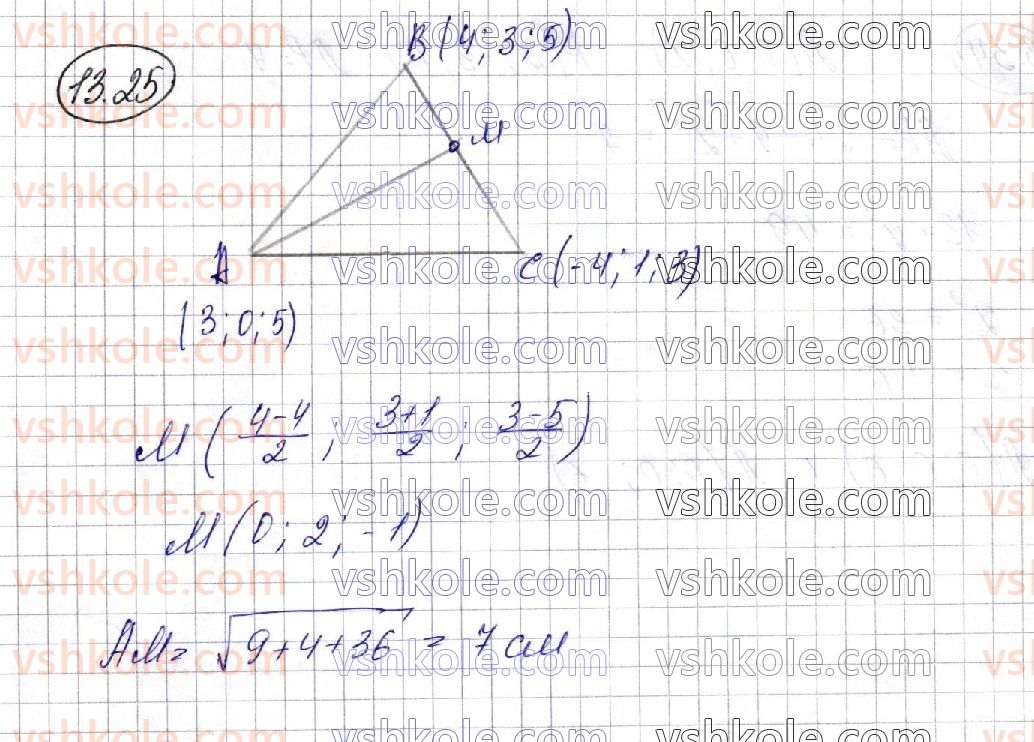 13.25
B (4; 3; 5)
M
A
C (-4; 1; 3)
(3; 0; 5)
M ( \frac{4-4}{2} ; \frac{3+1}{2} ; \frac{3-5}{2} )
M (0; 2; -1)
AM = \sqrt{9+4+36} = 7 см
vshkole.com